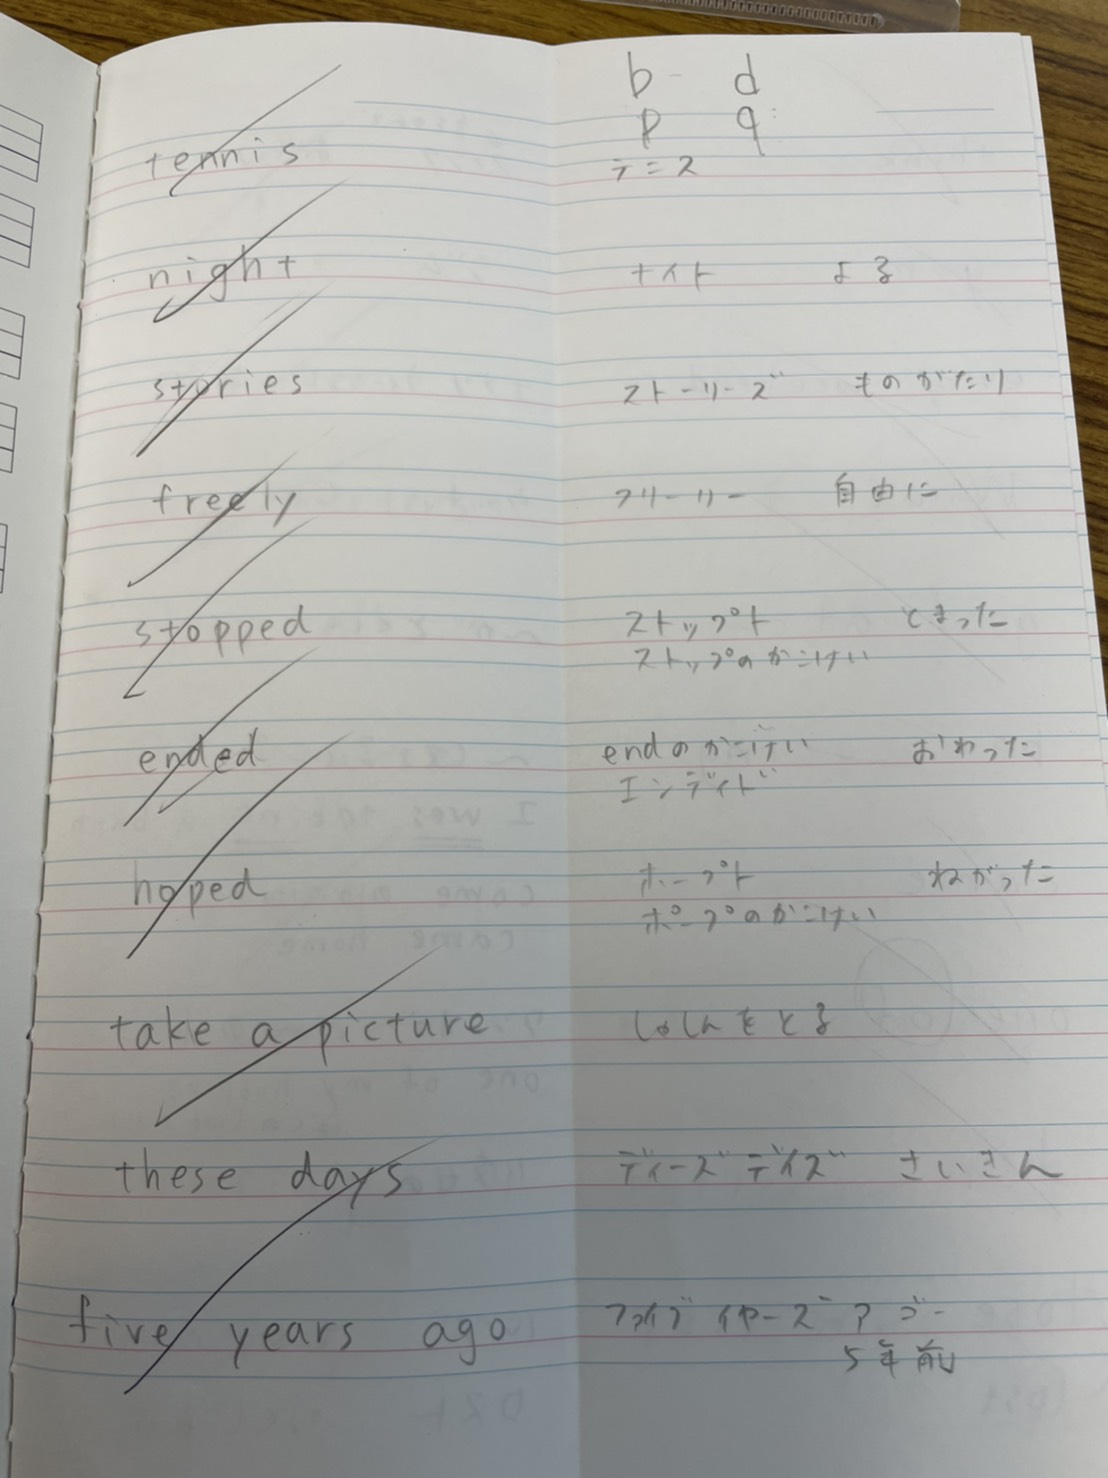 b - d
p q
tennis テニス
night ナイト よる
stories ストーリーズ ものがたり
freely フリーリー 自由に
stopped ストップト とまった
ストップのかこけい
ended endのかこけい おわった
エンディド
hoped ホープト ねがった
ポープのかこけい
take a picture しゃしんをとる
these days ディーズデイズ さいきん
five years ago ファイブイヤーズアゴー
5年前